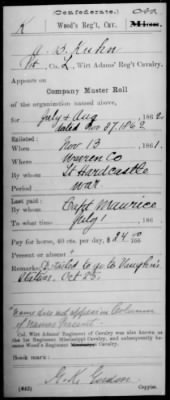 (Confederate.)
K Wood's Reg't, Cav. Miss.
A. S. Kuhn
Pvt, Co. L, Wirt Adams' Reg't Cavalry.
Appears on
Company Muster Roll
of the organization named above,
for July & Aug 1862
dated Nov 27, 1862
Enlisted:
When Nov 13, 1861
Where Warren Co
By whom Lt Hardcastle
Period war
Last paid:
By whom Capt Maurice
To what time July 1, 186
Pay for horse, 40 cts. per day, $ 24.00 100
Present or absent
Remarks: Detailed to go to Vaughn's
Station. Oct 25.
"Name does not appear in Column
of Names Present".
Col. Wirt Adams' Regiment of Cavalry was also known as
the 1st Regiment Mississippi Cavalry, and subsequently became Wood's Regiment Mississippi Cavalry.
Book mark:
Gordon
(642) Copyist.